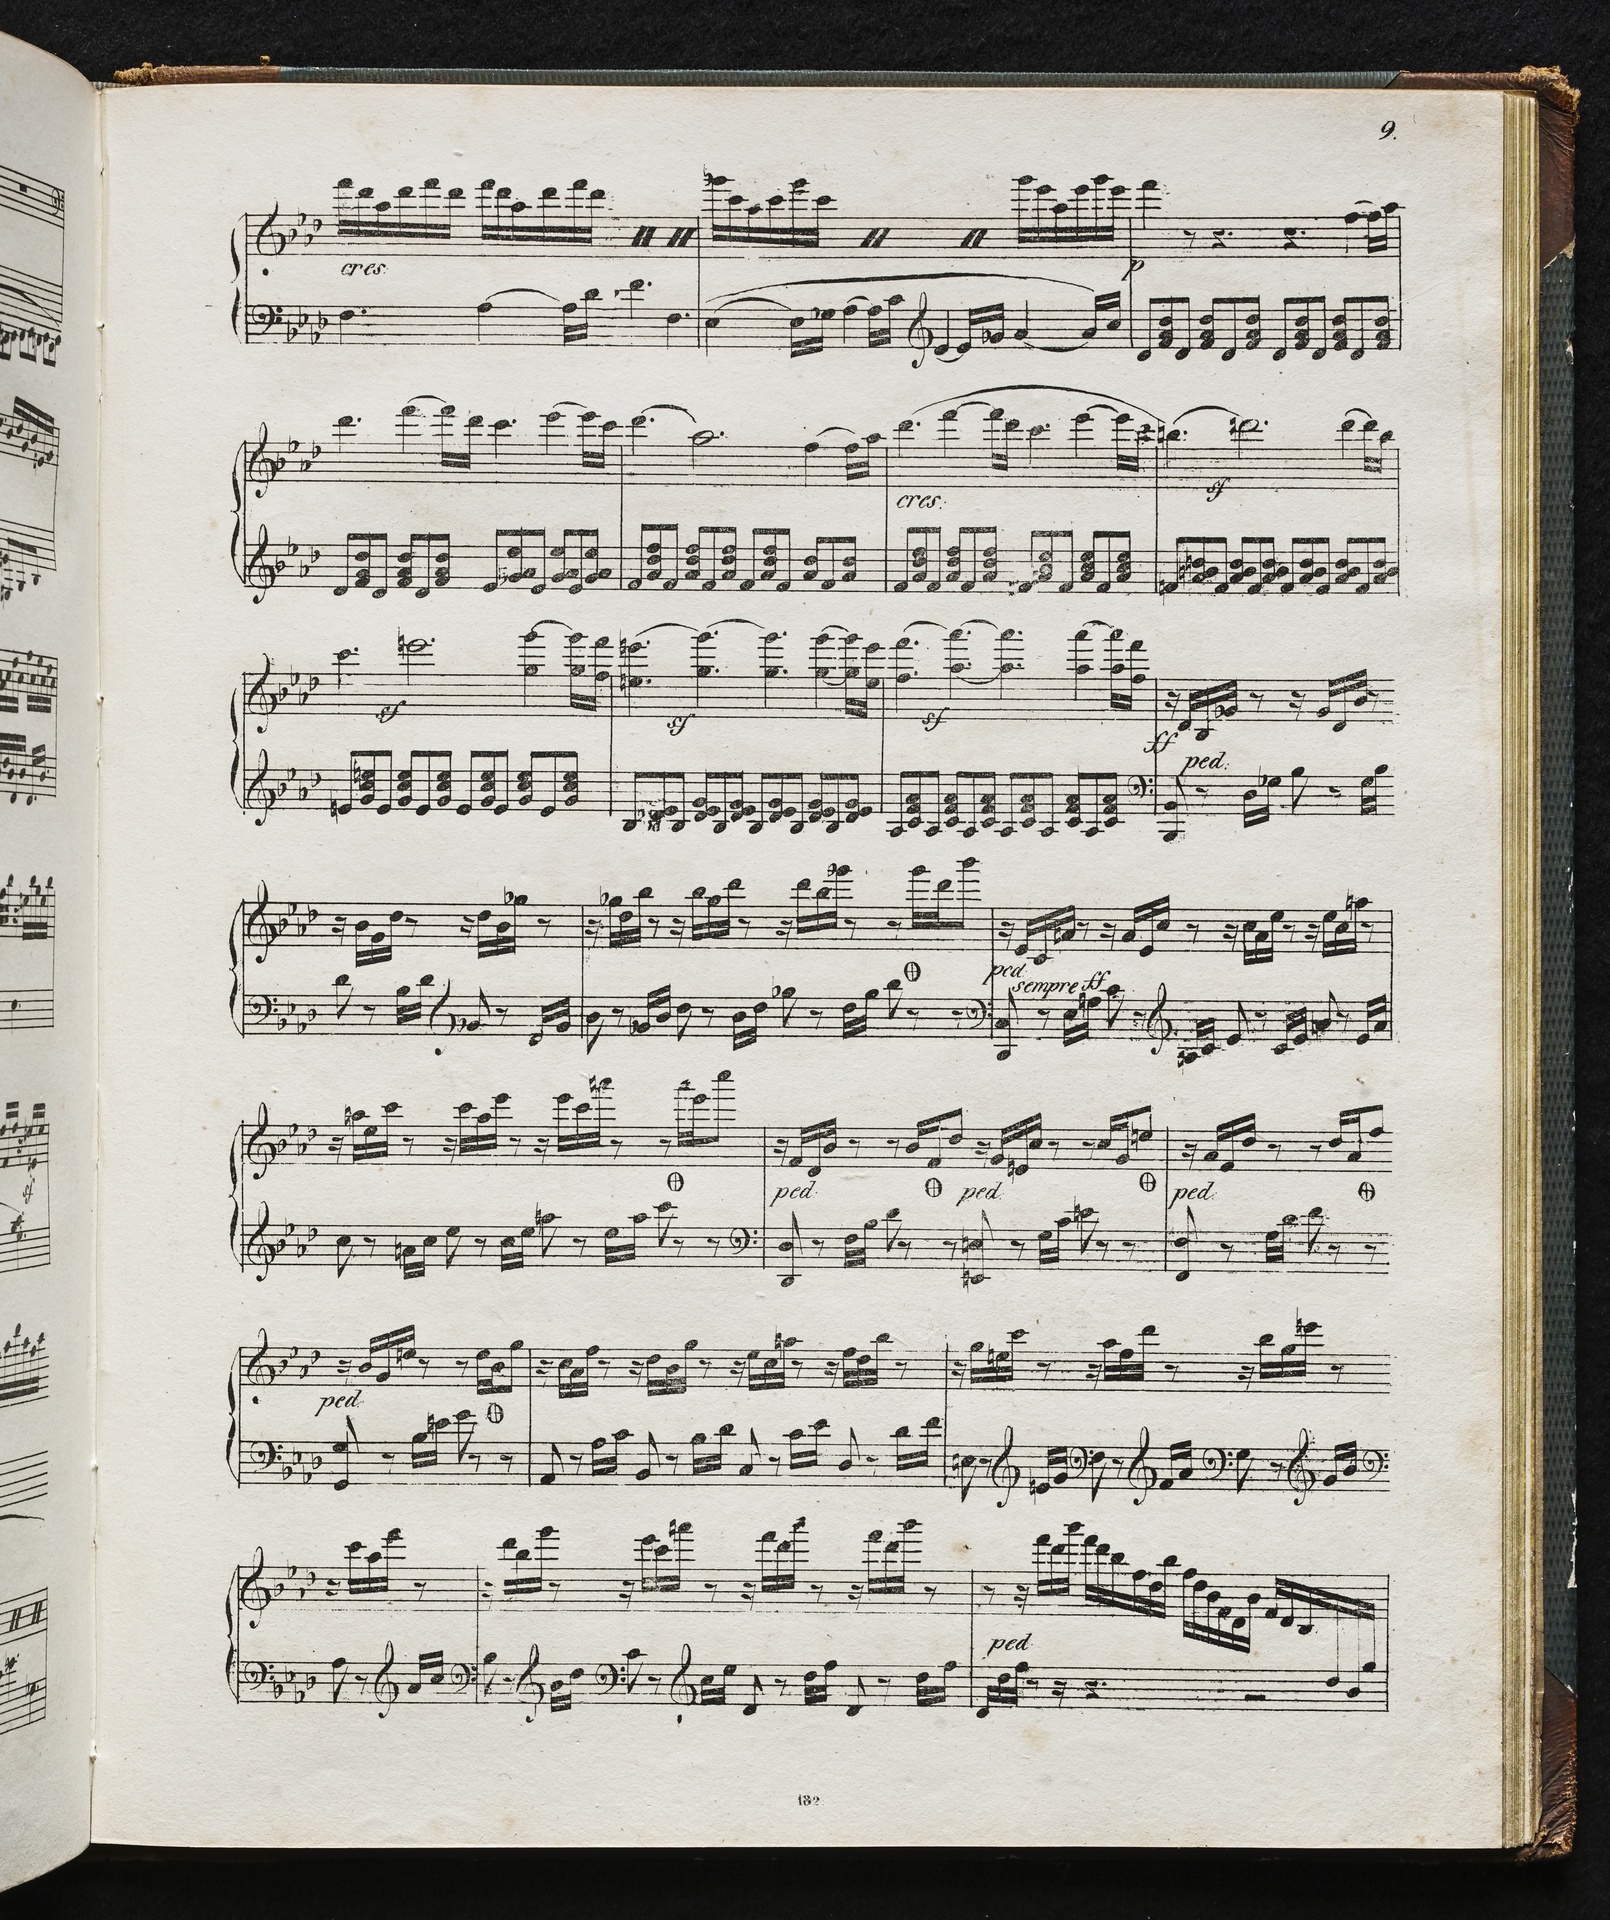 9.
cres:
p
cres:
sf
sf
sf
sf
ff
ped:
ped
sempre ff
ped:
ped:
ped:
ped:
ped
132